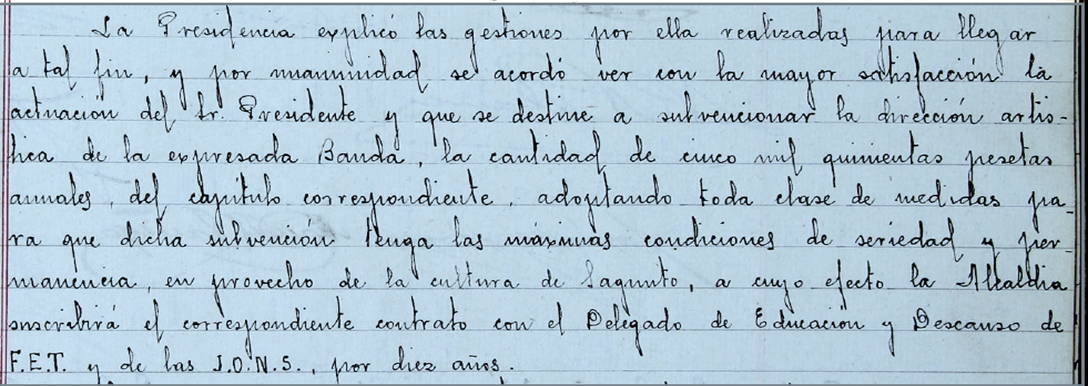 La Presidencia explicó las gestiones por ella realizadas para llegar
a tal fin, y por unanimidad se acordó ver con la mayor satisfacción la
actuación del Sr. Presidente y que se destine a subvencionar la dirección artis-
tica de la expresada Banda, la cantidad de cinco mil quinientas pesetas
anuales, del capítulo correspondiente, adoptando toda clase de medidas pa-
ra que dicha subvención tenga las máximas condiciones de seriedad y per-
manencia, en provecho de la cultura de Sagunto, a cuyo efecto la Alcaldia
suscribirá el correspondiente contrato con el Delegado de Educación y Descanso de
F.E.T. y de las J.O.N.S., por diez años.